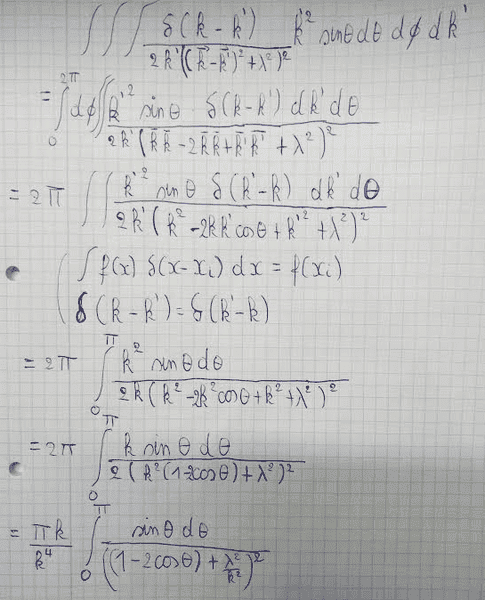 ∫∫∫ δ(k-k') / 2k'((k⃗-k⃗')²+λ²)² k'² sinθ dθ dϕ dk'
= ∫₀^2π dϕ ∫∫ k'² sinθ · δ(k-k') dk' dθ / 2k'(k⃗k⃗ - 2k⃗k⃗ + k⃗'k⃗' + λ²)²
= 2π ∫∫ k'² sinθ δ(k'-k) dk' dθ / 2k'(k² - 2kk'cosθ + k'² + λ²)²
( ∫ f(x) δ(x-xᵢ) dx = f(xᵢ)
δ(k-k') = δ(k'-k)
= 2π ∫₀^π k² sinθ dθ / 2k(k² - 2k²cosθ + k² + λ²)²
= 2π ∫₀^π k sinθ dθ / 2(k²(1-2cosθ) + λ²)²
= πk/k⁴ ∫₀^π sinθ dθ / ((1-2cosθ) + λ²/k²)²